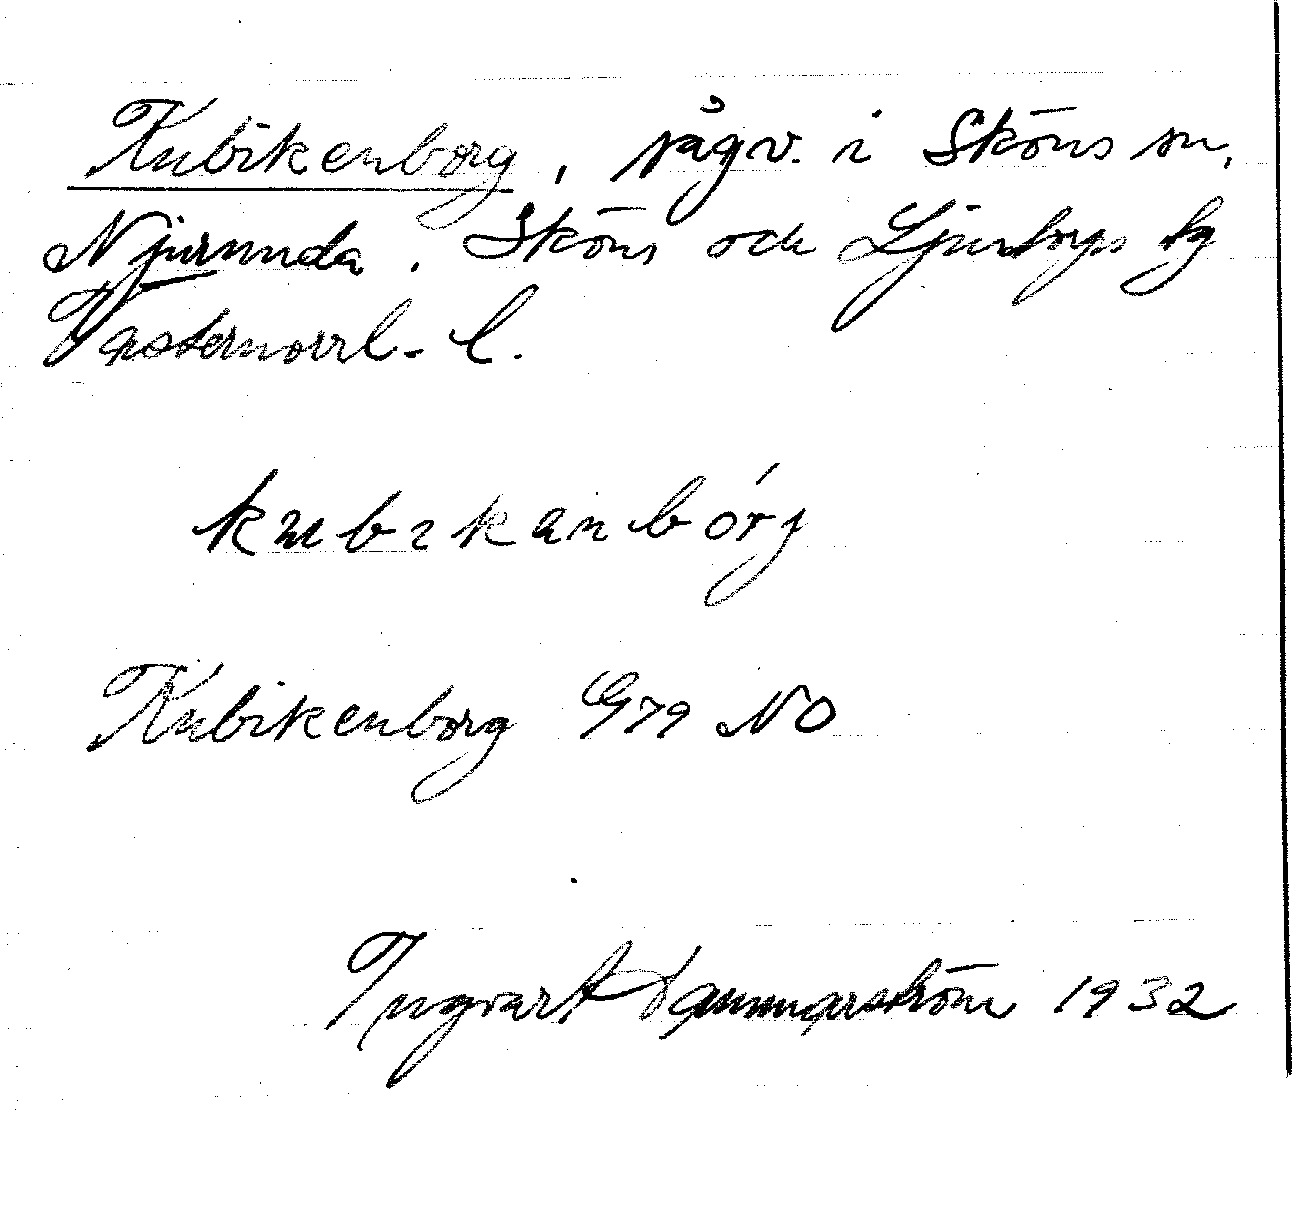 Kubikenborg, sågv. i Sköns sn,
Njurunda, Sköns och Ljustorps tg
Västernorrl. l.
kubikanbórj
Kubikenborg G79 NO
Ingvart Hammarström 1932